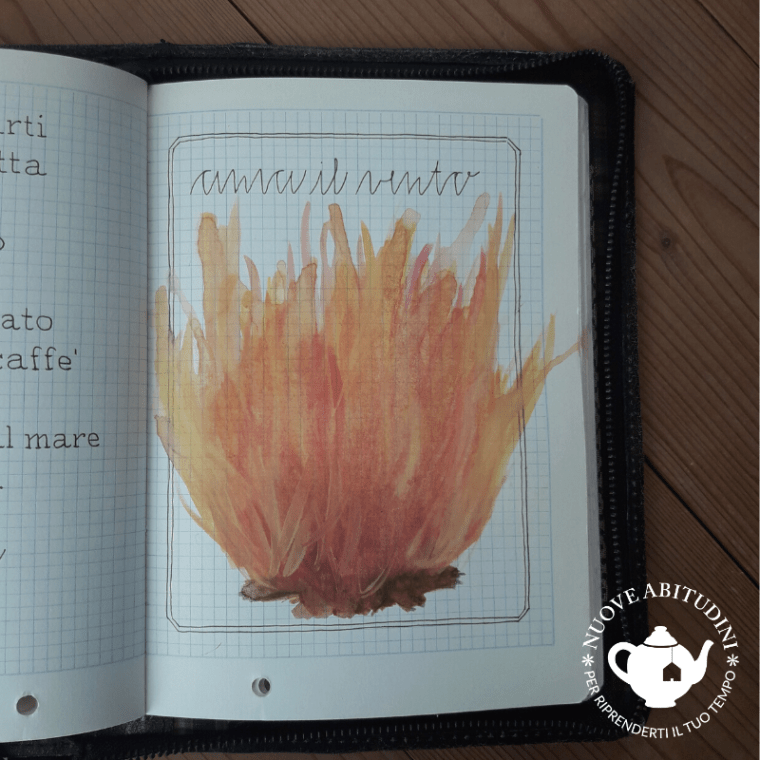 arti
tta
o
ato
caffe'
al mare
ama il vento
* NUOVE ABITUDINI *
PER RIPRENDERTI IL TUO TEMPO